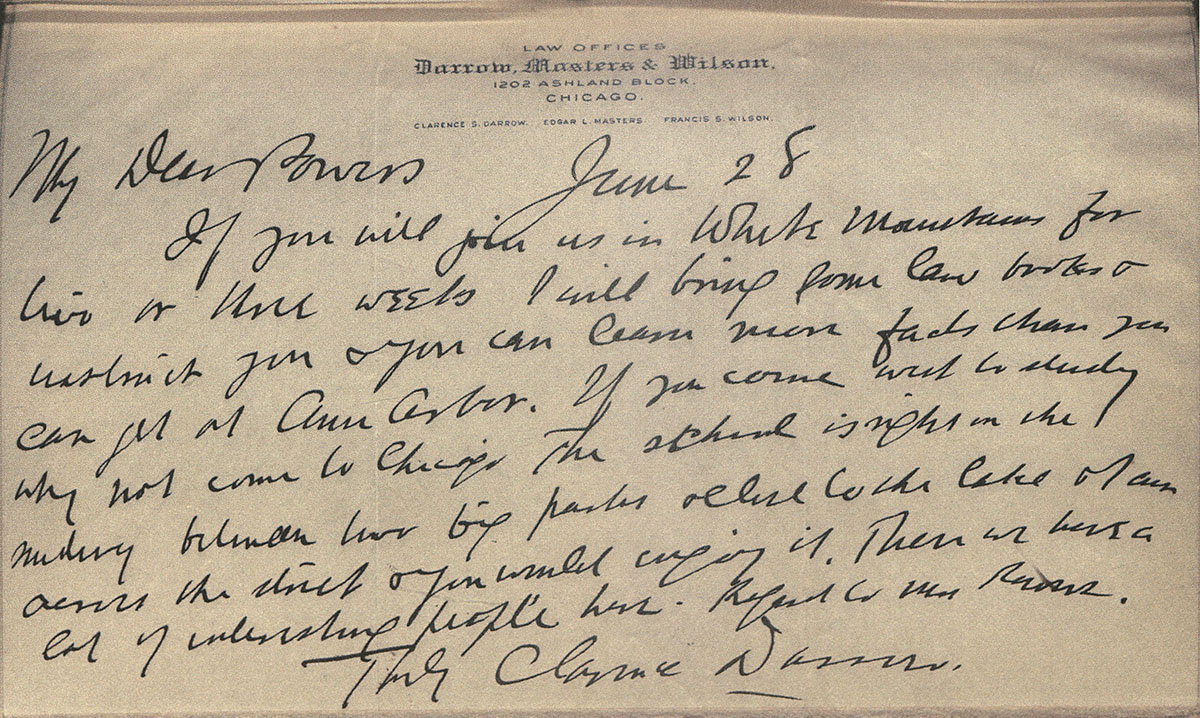 LAW OFFICES
Darrow, Masters & Wilson,
1202 ASHLAND BLOCK,
CHICAGO.
CLARENCE S. DARROW. EDGAR L. MASTERS. FRANCIS S. WILSON.
My Dear Bowers June 28
If you will join us in White Mountains for
two or three weeks I will bring some law books &
instruct you & you can learn more facts than you
can get at Ann Arbor. If you come west to study
why not come to Chicago The school is right on the
midway between two big parks & close to the lake & I am
across the street & you would enjoy it. Then we have a
lot of interesting people here. Regard to Mrs
Truly Clarence Darrow.